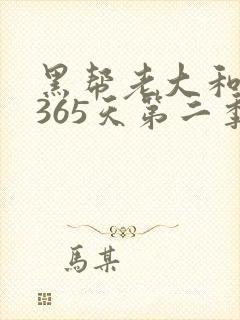 黑帮老大和
365天第二季
馬某